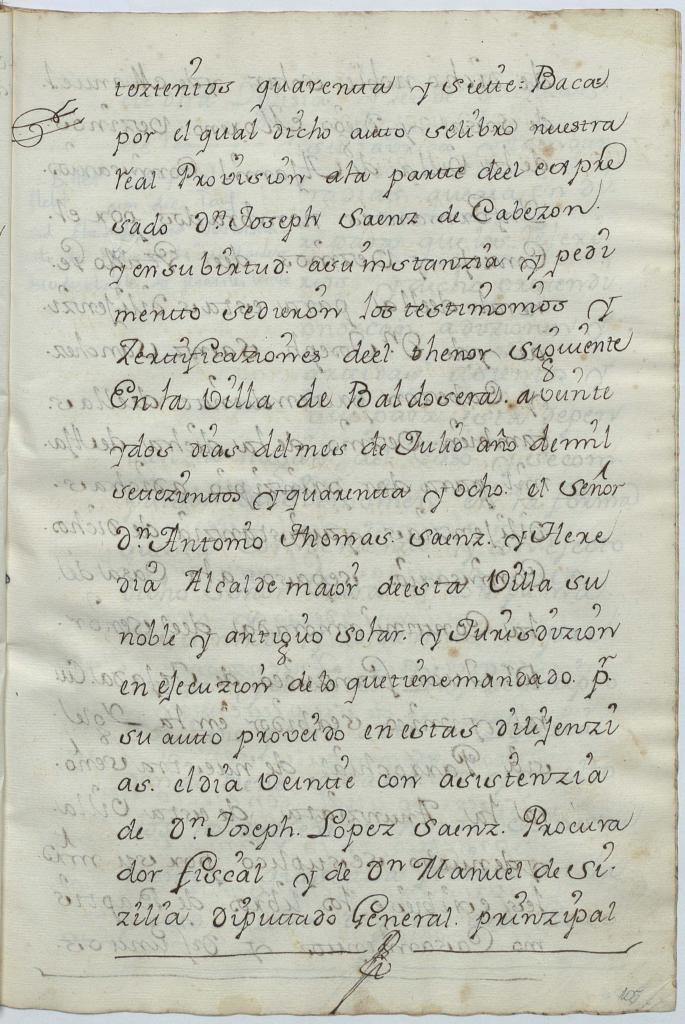 tezientos quarenta y Siette: Baca=
por el qual dicho autto selibro nuestra
real Provision ala partte deel expre
sado Dn. Joseph Saenz de Cabezon.
y ensubirtud: asuinstanzia y pedi
mento sedieron los testimonios y
Zertificaziones deel thenor siguiente
Enla Villa de Baldosera. a veinte
ydos dias delmes de Julio año demil
settezientos y quarentta y ocho. el señor
Dn. Antonio Thomas. Saenz. y Here
dia Alcalde maior deesta Villa su
noble y antiguo solar. y Jurisdizion
en ejecuzion delo quetienemandado. pr.
su autto proveido enestas dilijenzi
as. eldia veintte con asistenzia
de Dn. Joseph. Lopez Saenz. Procura
dor fiscal y de Dn Manuel de Si-
zilia. Diputtado General. prinzipal
105